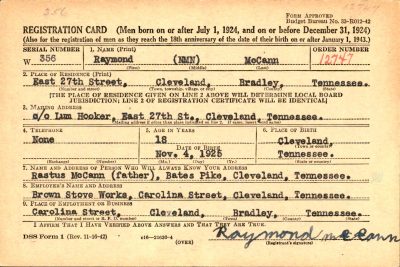 356
Form Approved
Budget Bureau No. 33-R012-42
REGISTRATION CARD—(Men born on or after July 1, 1924, and on or before December 31, 1924)
(Also for the registration of men as they reach the 18th anniversary of the date of their birth on or after January 1, 1943.)
SERIAL NUMBER
1. NAME (Print)
ORDER NUMBER
W 356
Raymond (NMN) McCann
12747
(First) (Middle) (Last)
2. PLACE OF RESIDENCE (Print)
East 27th Street, Cleveland, Bradley, Tennessee.
(Number and street) (Town, township, village, or city) (County) (State)
[THE PLACE OF RESIDENCE GIVEN ON LINE 2 ABOVE WILL DETERMINE LOCAL BOARD
JURISDICTION; LINE 2 OF REGISTRATION CERTIFICATE WILL BE IDENTICAL]
3. MAILING ADDRESS
c/o Lum Hooker, East 27th St., Cleveland, Tennessee.
4. TELEPHONE
5. AGE IN YEARS
6. PLACE OF BIRTH
None
18
Cleveland
DATE OF BIRTH
(Town or county)
Nov. 4, 1925
Tennessee.
7. NAME AND ADDRESS OF PERSON WHO WILL ALWAYS KNOW YOUR ADDRESS
Rastus McCann (father), Bates Pike, Cleveland, Tennessee.
8. EMPLOYER'S NAME AND ADDRESS
Brown Stove Works, Carolina Street, Cleveland, Tennessee.
9. PLACE OF EMPLOYMENT OR BUSINESS
Carolina Street, Cleveland, Bradley, Tennessee.
I AFFIRM THAT I HAVE VERIFIED ABOVE ANSWERS AND THAT THEY ARE TRUE.
DSS Form 1 (Rev. 11-16-42)
(OVER)
Raymond McCann
(Registrant's signature)